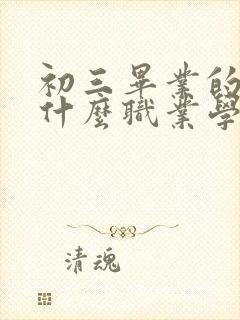 初三畢業的
什麼職業學
清魂